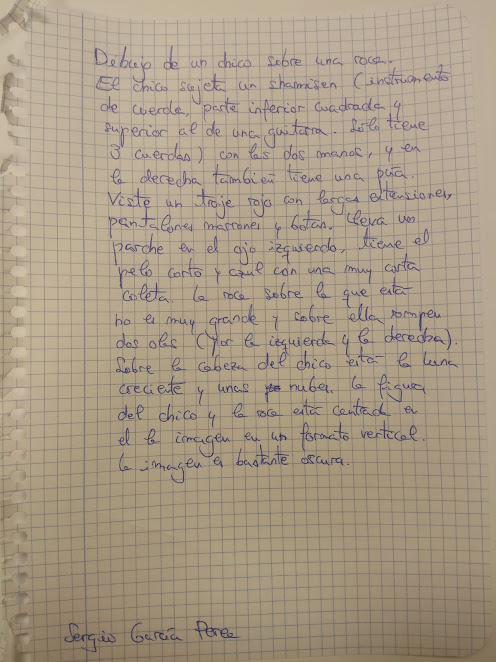 Debujo de un chico sobre una roca.
El chico sujeta un shamisen (instrumento
de cuerda, parte inferior cuadrada y
superior al de una guitarra. Sólo tiene
3 cuerdas) con las dos manos, y en
la derecha también tiene una púa.
Viste un traje rojo con largas extensiones,
pantalones marrones y botas. Lleva un
parche en el ojo izquierdo, tiene el
pelo corto y azul con una muy corta
coleta. La roca sobre la que está
no es muy grande y sobre ella rompen
dos olas (por la izquierda y la derecha).
Sobre la cabeza del chico está la luna
creciente y unas nubes. La figura
del chico y la roca está centrada en
el la imagen en un formato vertical.
La imagen es bastante oscura.
Sergio García Perez